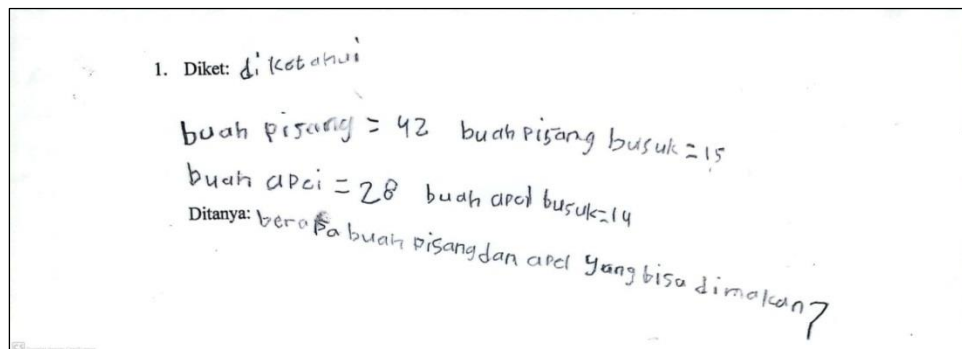 1. Diket: diketahui
buah pisang = 42 buah pisang busuk = 15
buah apel = 28 buah apel busuk = 14
Ditanya: berapa buah pisang dan apel yang bisa dimakan?